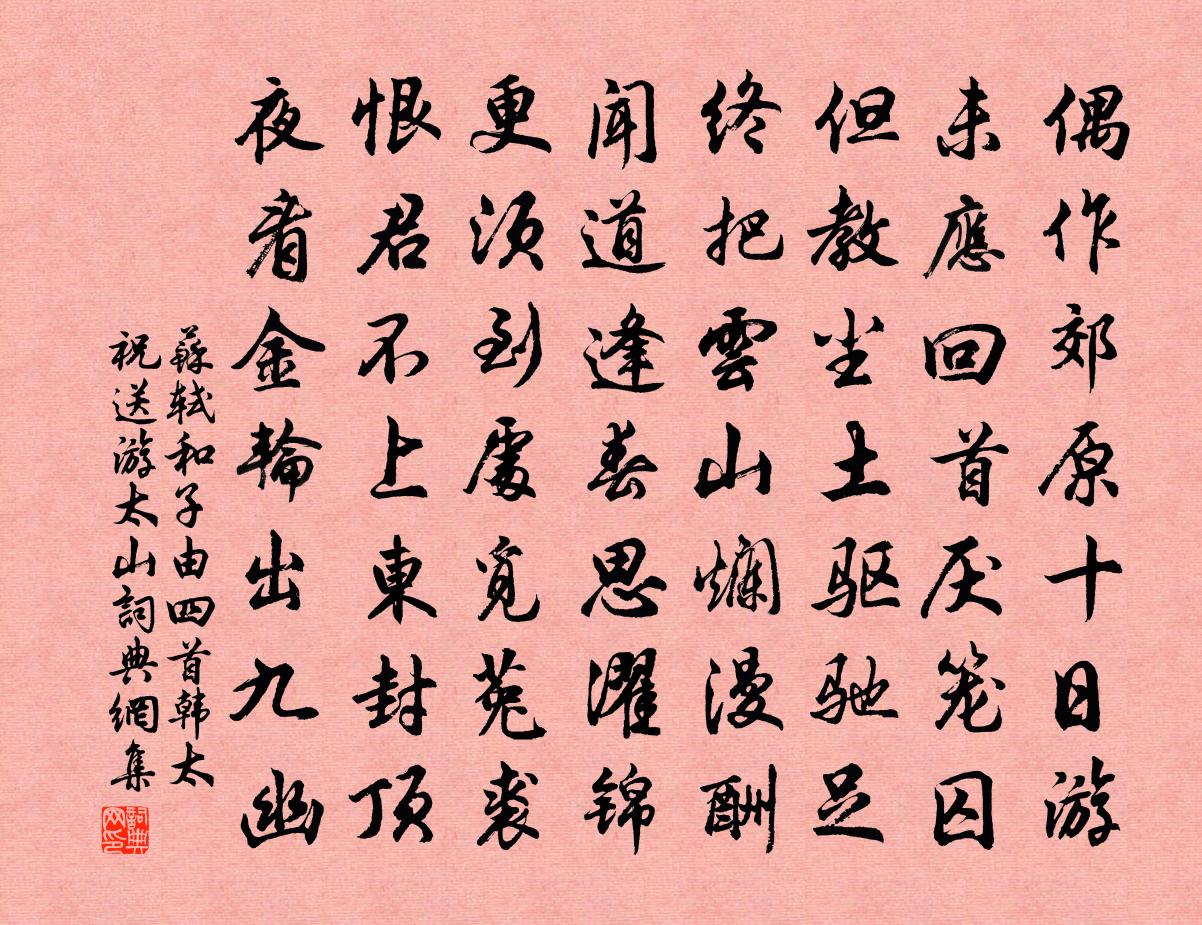 偶作郊原十日游
未應回首厌笼囚
但教尘土驱驰足
终把雲山爛漫酬
闻道逢春思濯锦
更须到處覓菟裘
恨君不上東封顶
夜看金輪出九幽
蘇轼和子由四首韩太
祝送游太山詞典網集
詞典网印